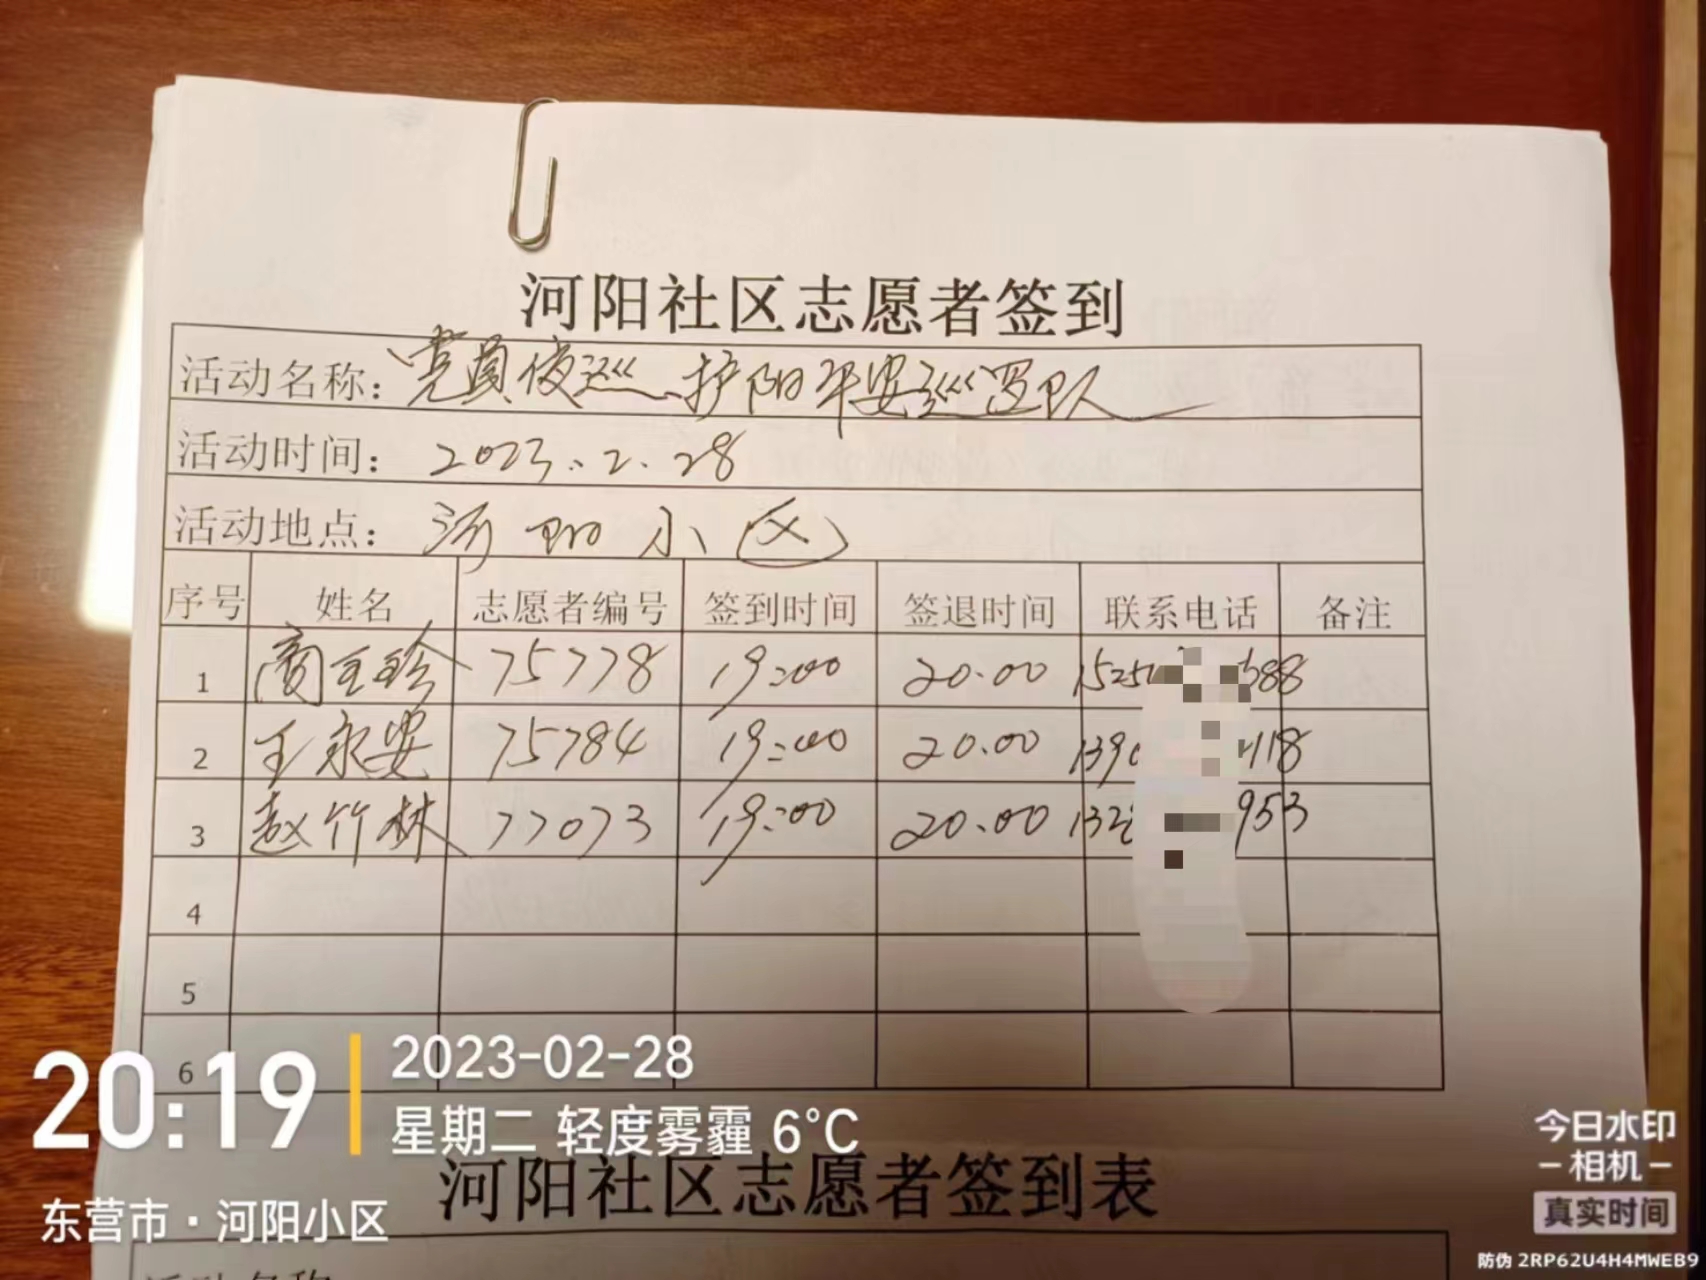 河阳社区志愿者签到
活动名称：党员夜巡、护阳平安巡逻队
活动时间：2023.2.28
活动地点：河阳小区
序号 姓名 志愿者编号 签到时间 签退时间 联系电话 备注
1 商玉珍 75778 19:00 20.00 1525 588
2 王永安 75784 19:00 20.00 139 118
3 赵竹林 77073 19:00 20.00 132 953
4
5
6
20:19
2023-02-28
星期二 轻度雾霾 6°C
东营市·河阳小区
河阳社区志愿者签到表
今日水印
-相机-
真实时间
防伪 2RP62U4H4MWEB9